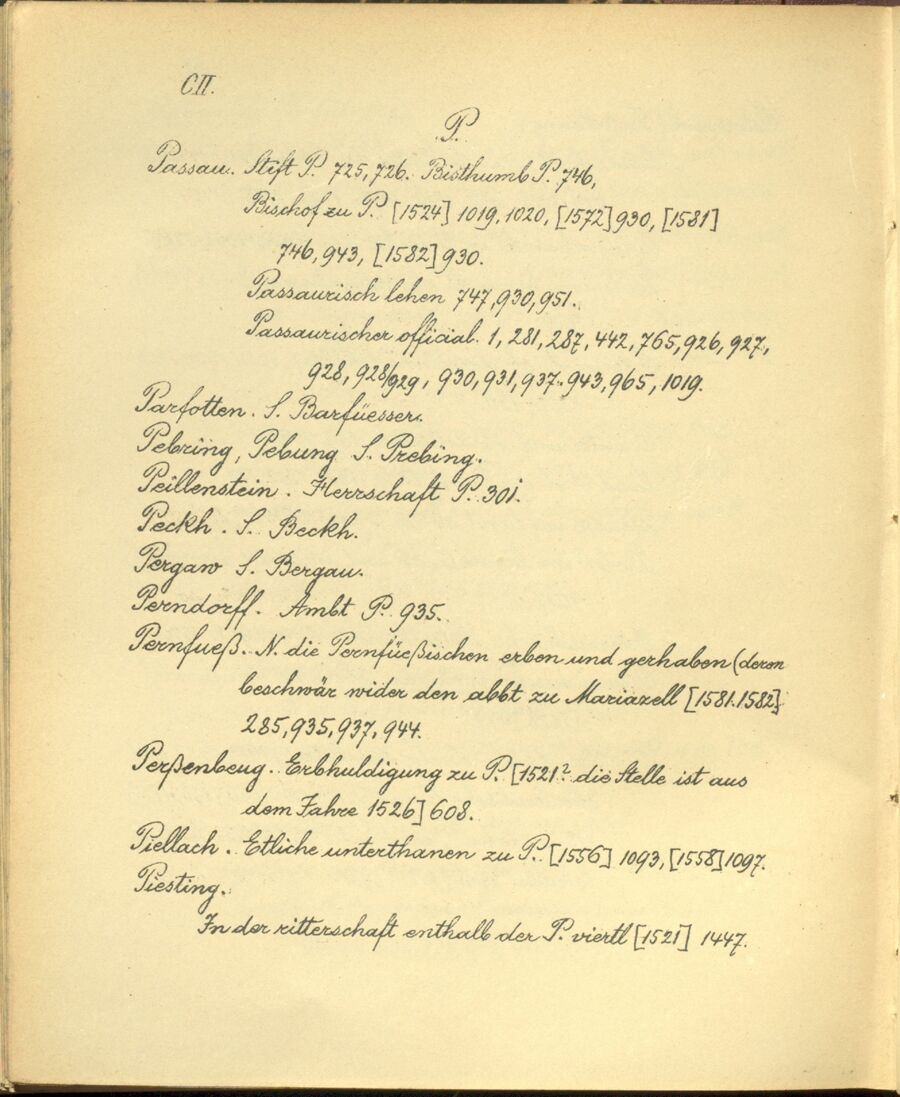 CII.
P.
Passau. Stift P. 725, 726. Bisthumb P. 746,
Bischof zu P. [1524] 1019, 1020, [1572] 930, [1581]
746, 943, [1582] 930.
Passaurisch lehen 747, 930, 951.
Passaurischer official. 1, 281, 287, 442, 765, 926, 927,
928, 928/929, 930, 931, 937. 943, 965, 1019.
Parfotten. S. Barfüesser.
Pebring, Pebung S. Prebing.
Peillenstein. Herrschaft P. 301.
Peckh. S. Beckh.
Pergaw S. Bergau.
Perndorff. Ambt P. 935.
Pernfueß. N. die Pernfüeßischen erben und gerhaben (deren
beschwär wider den abbt zu Mariazell [1581.1582]
285, 935, 937, 944.
Perßenbeug. Erbhuldigung zu P. [1521? die Stelle ist aus
dem Jahre 1526] 608.
Piellach. Etliche unterthanen zu P. [1556] 1093, [1558] 1097.
Piesting.
In der ritterschaft enthalb der P. viertl [1521] 1447.